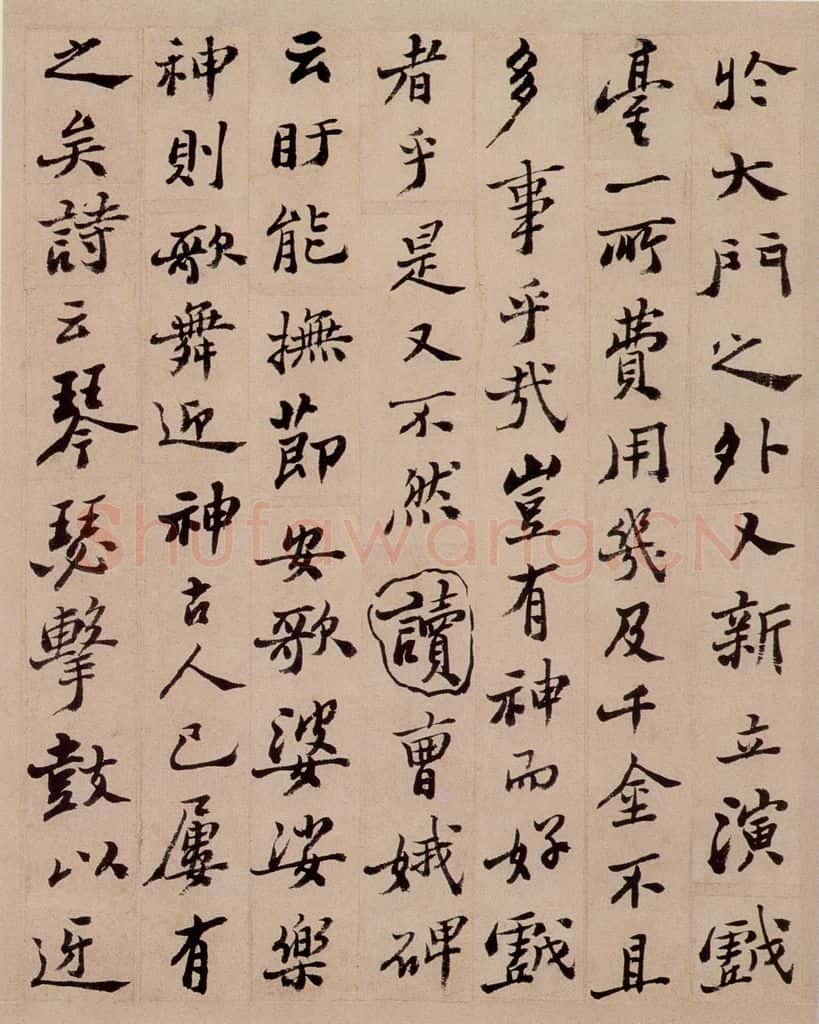 於大門之外又新立演戲
臺一所費用幾及千金不且
多事乎哉豈有神而好戲
者乎是又不然讀曹娥碑
云盱能撫節安歌婆娑樂
神則歌舞迎神古人已屢有
之矣詩云琴瑟擊鼓以迓
Shufawang.CN